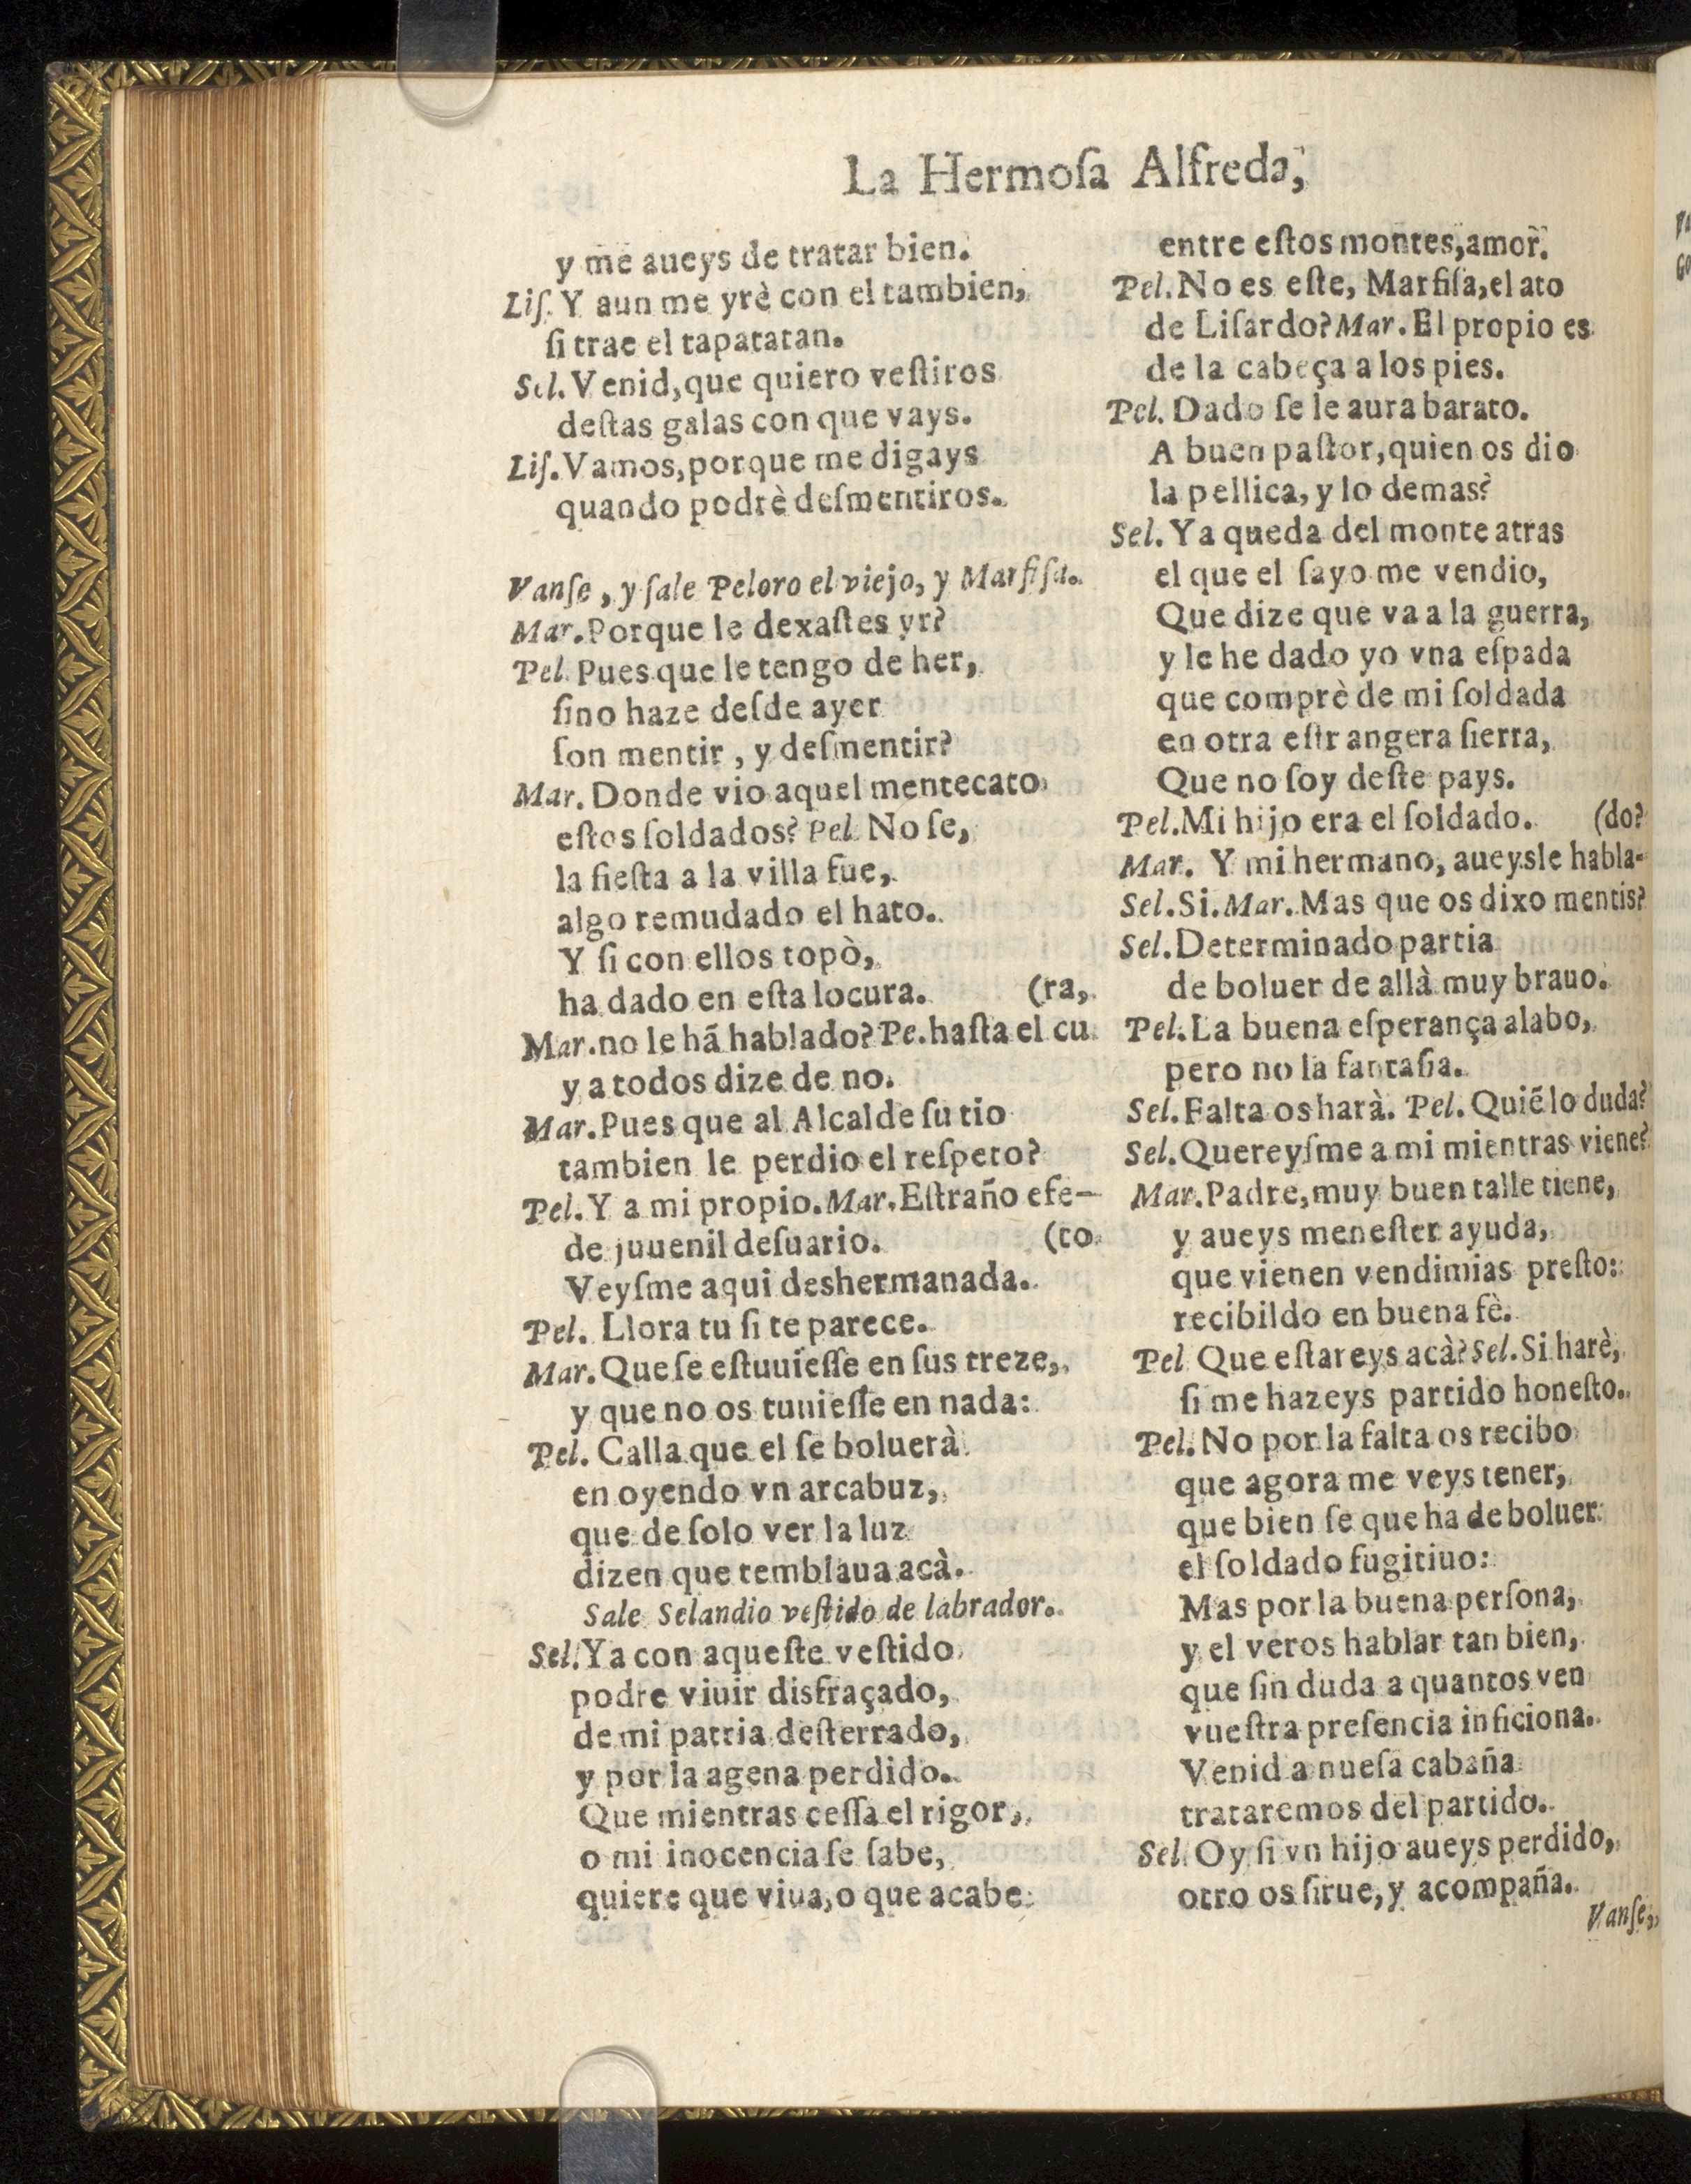 La Hermoſa Alfreda,
y me aueys de tratar bien.
Liſ. Y aun me yrè con el tambien,
ſi trae el tapatatan.
Sel. Venid, que quiero veſtiros
deſtas galas con que vays.
Liſ. Vamos, porque me digays
quando podrè deſmentiros.
Vanſe, y ſale Peloro el viejo, y Marfiſa.
Mar. Porque le dexaſtes yr?
Pel. Pues que le tengo de her,
ſino haze deſde ayer
ſon mentir, y deſmentir?
Mar. Donde vio aquel mentecato
eſtos ſoldados? Pel. No ſe,
la fieſta a la villa fue,
algo remudado el hato.
Y ſi con ellos topò,
ha dado en eſta locura. (ra,
Mar. no le hã hablado? Pe. haſta el cu
y a todos dize de no.
Mar. Pues que al Alcalde ſu tio
tambien le perdio el reſpeto?
Pel. Y a mi propio. Mar. Eſtraño efe-
de juuenil deſuario. (to
Veyſme aqui deshermanada.
Pel. Llora tu ſi te parece.
Mar. Que ſe eſtuuieſſe en ſus treze,
y que no os tuuieſſe en nada:
Pel. Calla que el ſe boluerà
en oyendo vn arcabuz,
que de ſolo ver la luz
dizen que temblaua acà.
Sale Selandio veſtido de labrador.
Sel. Ya con aqueſte veſtido
podre viuir disfraçado,
de mi patria deſterrado,
y por la agena perdido.
Que mientras ceſſa el rigor,
o mi inocencia ſe ſabe,
quiere que viua, o que acabe
entre eſtos montes, amor.
Pel. No es eſte, Marfiſa, el ato
de Liſardo? Mar. El propio es
de la cabeça a los pies.
Pel. Dado ſe le aura barato.
A buen paſtor, quien os dio
la pellica, y lo demas?
Sel. Ya queda del monte atras
el que el ſayo me vendio,
Que dize que va a la guerra,
y le he dado yo vna eſpada
que comprè de mi ſoldada
en otra eſtrangera ſierra,
Que no ſoy deſte pays.
Pel. Mi hijo era el ſoldado. (do?
Mar. Y mi hermano, aueysle habla-
Sel. Si. Mar. Mas que os dixo mentis?
Sel. Determinado partia
de boluer de allà muy brauo.
Pel. La buena eſperança alabo,
pero no la fantaſia.
Sel. Falta os harà. Pel. Quiẽ lo duda?
Sel. Quereyſme a mi mientras viene?
Mar. Padre, muy buen talle tiene,
y aueys meneſter ayuda,
que vienen vendimias preſto:
recibildo en buena fè.
Pel Que eſtareys acà? Sel. Si harè,
ſi me hazeys partido honeſto.
Pel. No por la falta os recibo
que agora me veys tener,
que bien ſe que ha de boluer
el ſoldado fugitiuo:
Mas por la buena perſona,
y el veros hablar tan bien,
que ſin duda a quantos ven
vueſtra preſencia inficiona.
Venid a nueſa cabaña
trataremos del partido.
Sel. Oy ſi vn hijo aueys perdido,
otro os ſirue, y acompaña.
Vanſe,